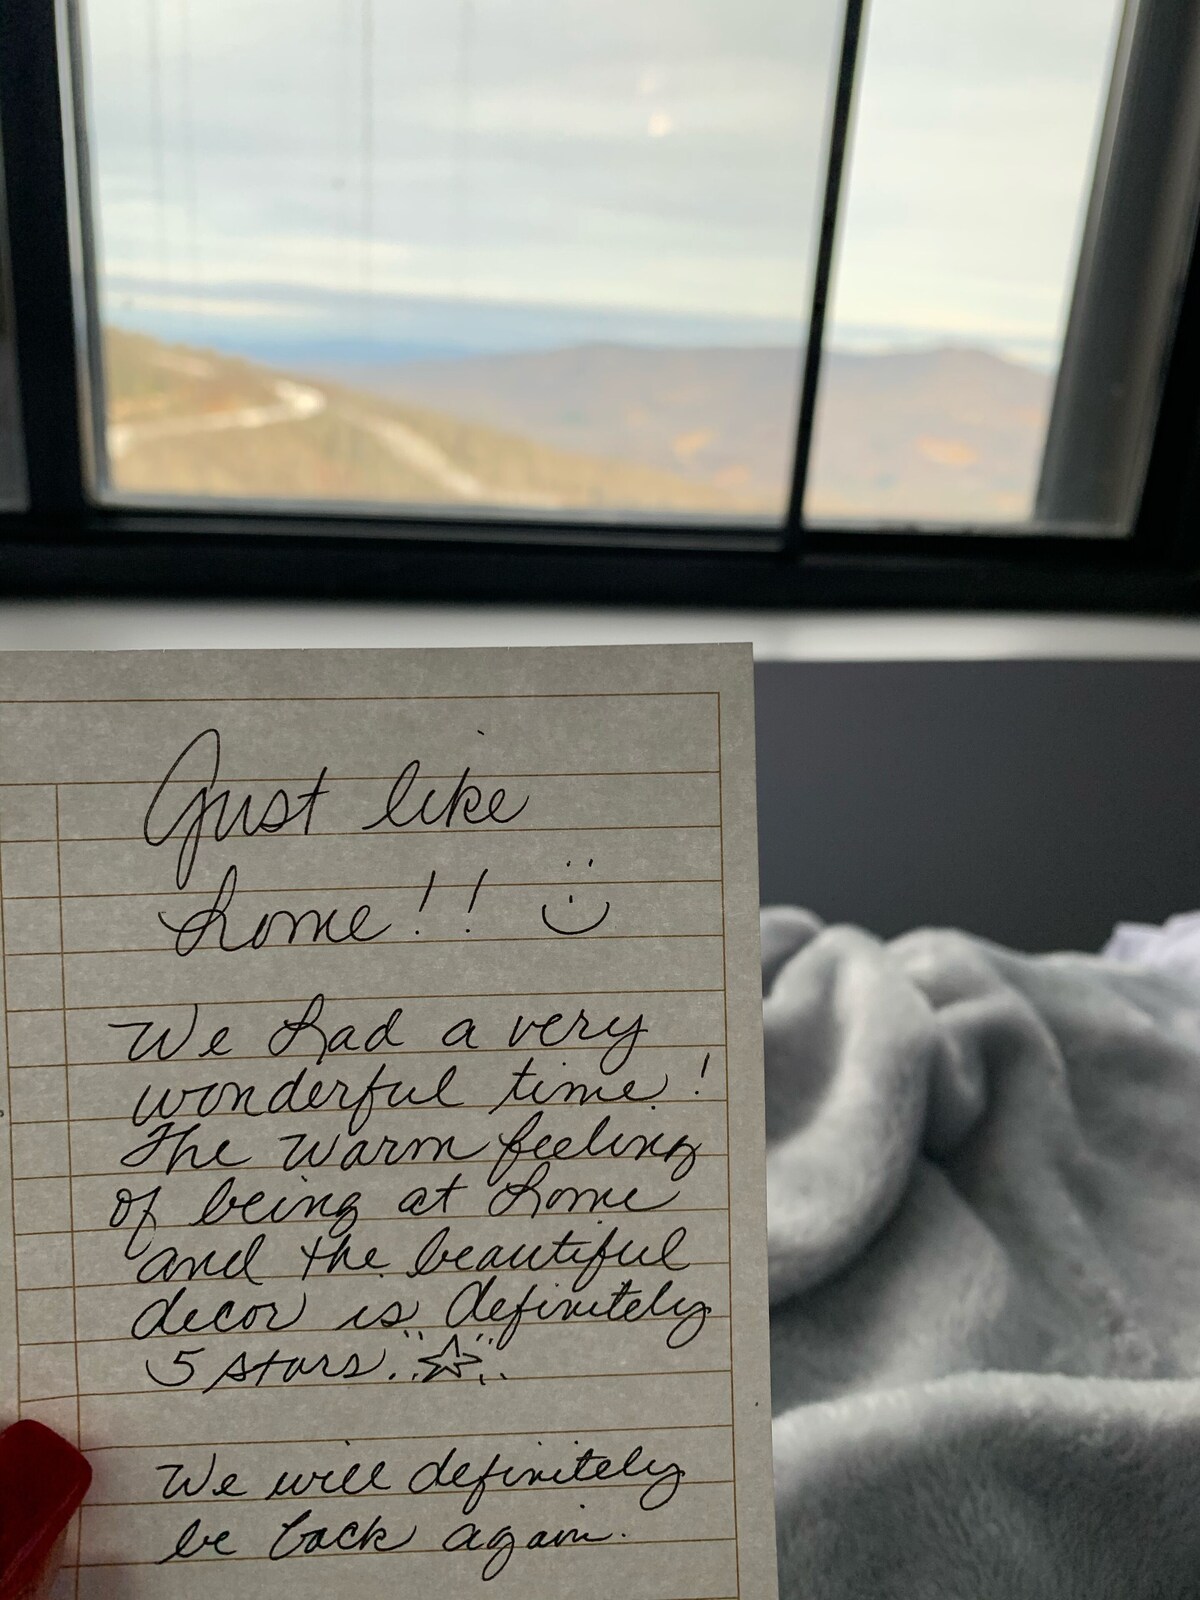 Just like
home!!
We had a very
wonderful time!
The warm feeling
of being at home
and the beautiful
decor is definitely
5 stars.
We will definitely
be back again.